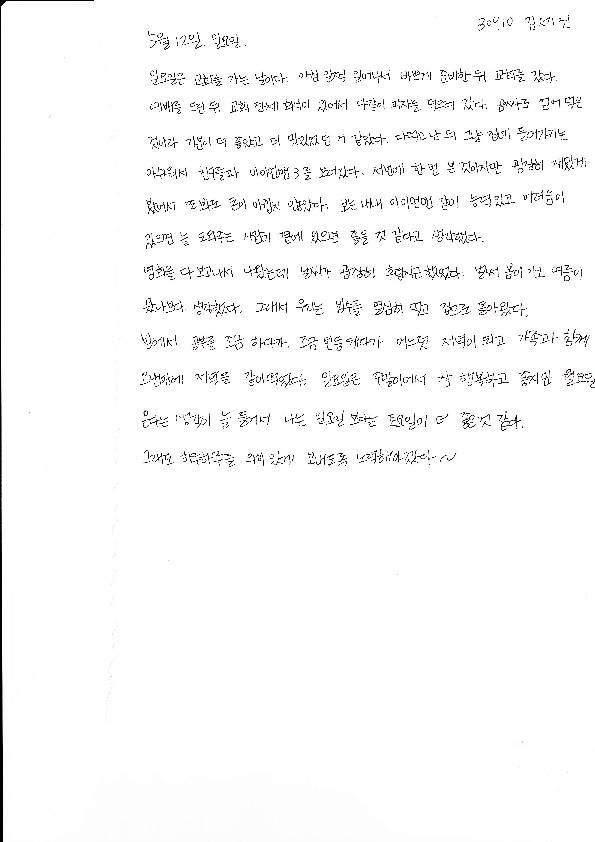 30910
5월 12일 일요일.
일요일은 교회를 가는 날이다. 아침 일찍 일어나서 바쁘게 준비한 뒤 교회를 갔다.
예배를 드린 뒤 교회 전체 회식이 있어서 다같이 피자를 먹으러 갔다. 공짜로 얻어 먹은
것이라 기분이 더 좋았고 더 맛있었던 거 같았다. 다먹고 난 뒤 그냥 집에 들어가기는
아쉬워서 친구들과 아이언맨3를 보러갔다. 저번에 한 번 본 것이지만 굉장히 재밌게
봤어서 또 봐도 돈이 아깝지 않았다. 보는 내내 아이언맨 같이 능력있고 어려움이
있으면 늘 도와주는 사람이 곁에 있으면 좋을 것 같다고 생각했다.
영화를 다 보고나서 나왔는데 날씨가 굉장히 후덥지근했었다. 벌써 봄이 가고 여름이
왔나보다 생각했다. 그래서 우리는 빙수를 열심히 먹고 집으로 돌아왔다.
집에서 공부를 조금 하다가 조금 빈둥대다가 어느덧 저녁이 되고 가족과 함께
오랜만에 저녁을 같이먹었다. 일요일은 주말이어서 참 행복하고 좋지만 월요일
온다는 생각이 늘 들어서 나는 일요일 보다는 토요일이 더 좋은 것 같다.
그래도 하루하루를 의미 있게 보내도록 노력해야겠다~